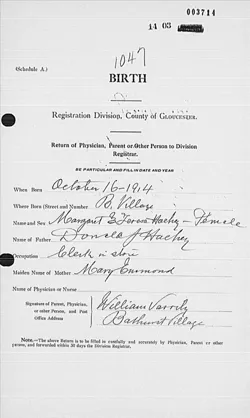 003714
14 03
1047
(Schedule A.)
BIRTH
Registration Division, County of GLOUCESTER.
Return of Physician, Parent or Other Person to Division
Registrar.
BE PARTICULAR AND FILL IN DATE AND YEAR
When Born October 16-1914
Where Born (Street and Number) B. Village
Name and Sex Margaret E Teresa Hachey - Female
Name of Father Donald J Hachey
Occupation Clerk in store
Maiden Name of Mother Mary
Name of Physician or Nurse
Signature of Parent, Physician, William
or other Person, and Post
Office Address Bathurst Village
NOTE.—The above Return is to be filled in carefully and accurately by Physician, Parent or other
person, and forwarded within 30 days the Division Registrar.